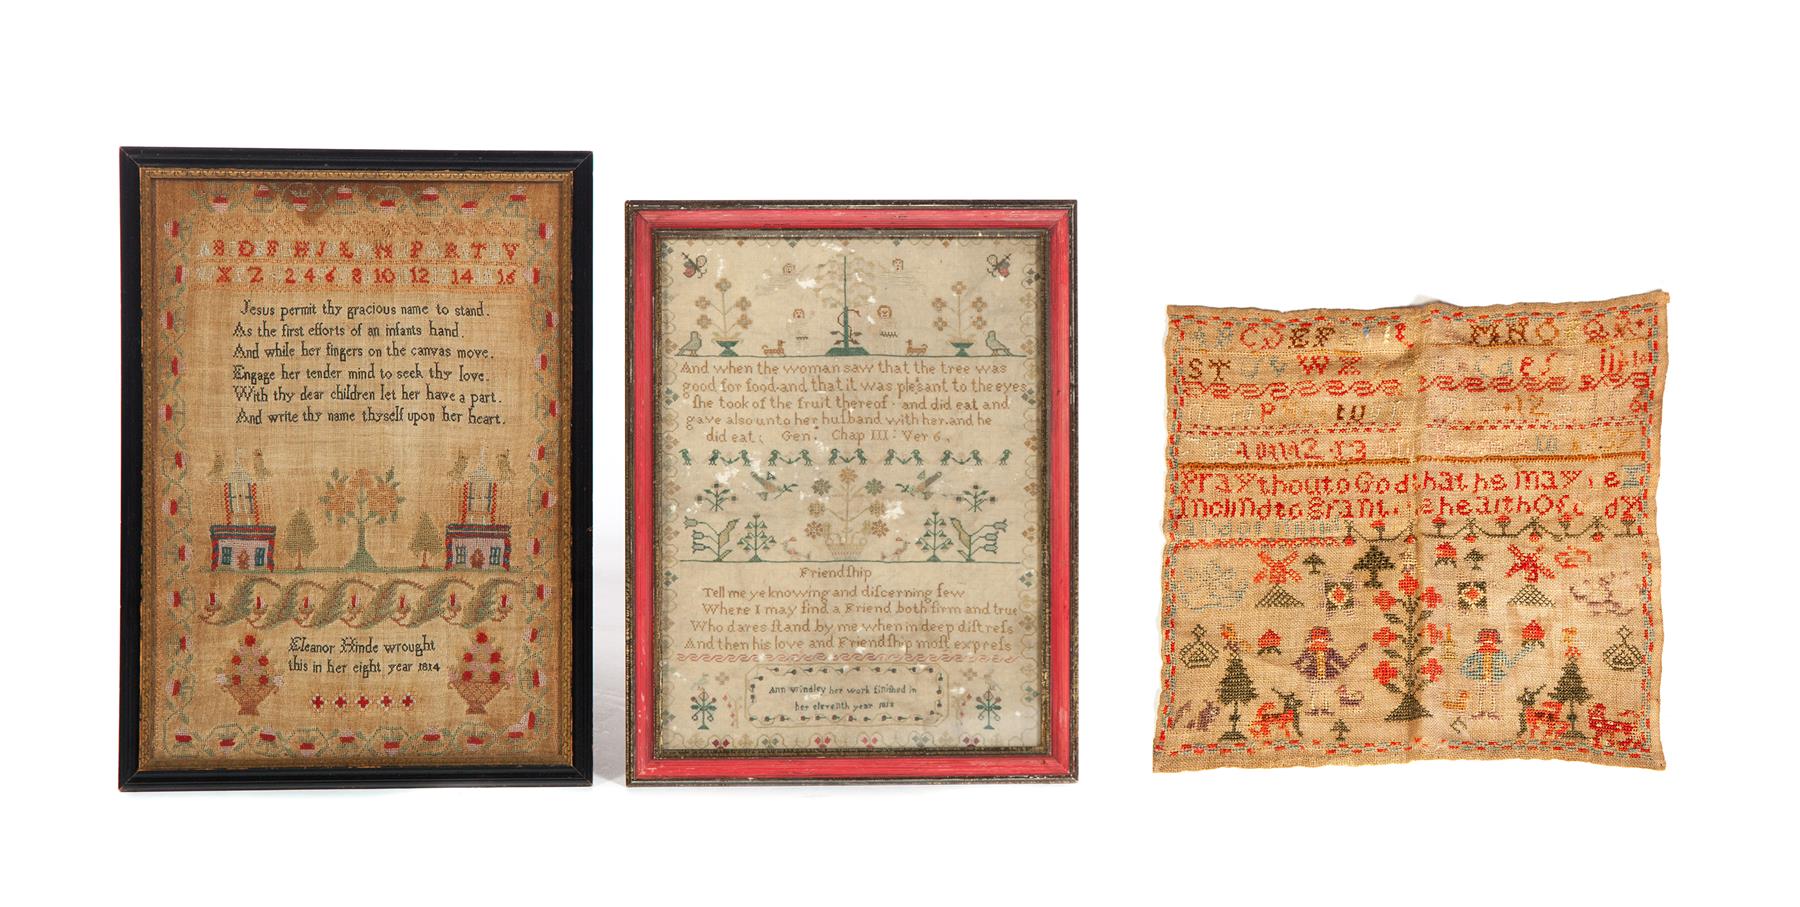 B D F H J L N P R T V
X Z 2 4 6 8 10 12 14 16
Jesus permit thy gracious name to stand.
As the first efforts of an infants hand.
And while her fingers on the canvas move.
Engage her tender mind to seek thy love.
With thy dear children let her have a part.
And write thy name thyself upon her heart.
Eleanor Hinde wrought
this in her eight year 1814
And when the woman saw that the tree was
good for food and that it was plesant to the eyes
ſhe took of the fruit thereof and did eat and
gave also unto her huſband with her and he
did eat; Gen: Chap III: Ver 6.
Friendſhip
Tell me ye knowing and diſcerning few
Where I may find a Friend both firm and true
Who dares ſtand by me when in deep diſtreſs
And then his love and Friendſhip moſt expreſs
Ann Windley her work finished in
her eleventh year
M N O
S T U V W X
Pray thou to God that he may